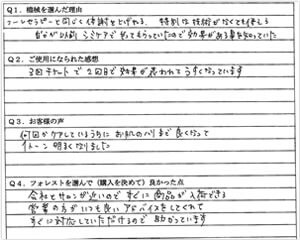 Q1. 機械を選んだ理由
コールセラピーで同じく体感を上げれる 特別な技術がなくてもできる
自分が以前 シミケアでやってもらっていたので効果がある事を知っていた
Q2. ご使用になられた感想
3回チケットで 2回目で効果が表われてうすくなっています
Q3. お客様の声
何回かケアしているうちに お肌のハリまで良くなって
1トーン 明るくなりました
Q4. フォレストを選んで(購入を決めて)良かった点
会社とサロンが近いので すぐに商品が入荷できる
営業の方がいつも良いアドバイスをしてくれて
すぐに対応していただけるので 助かっています